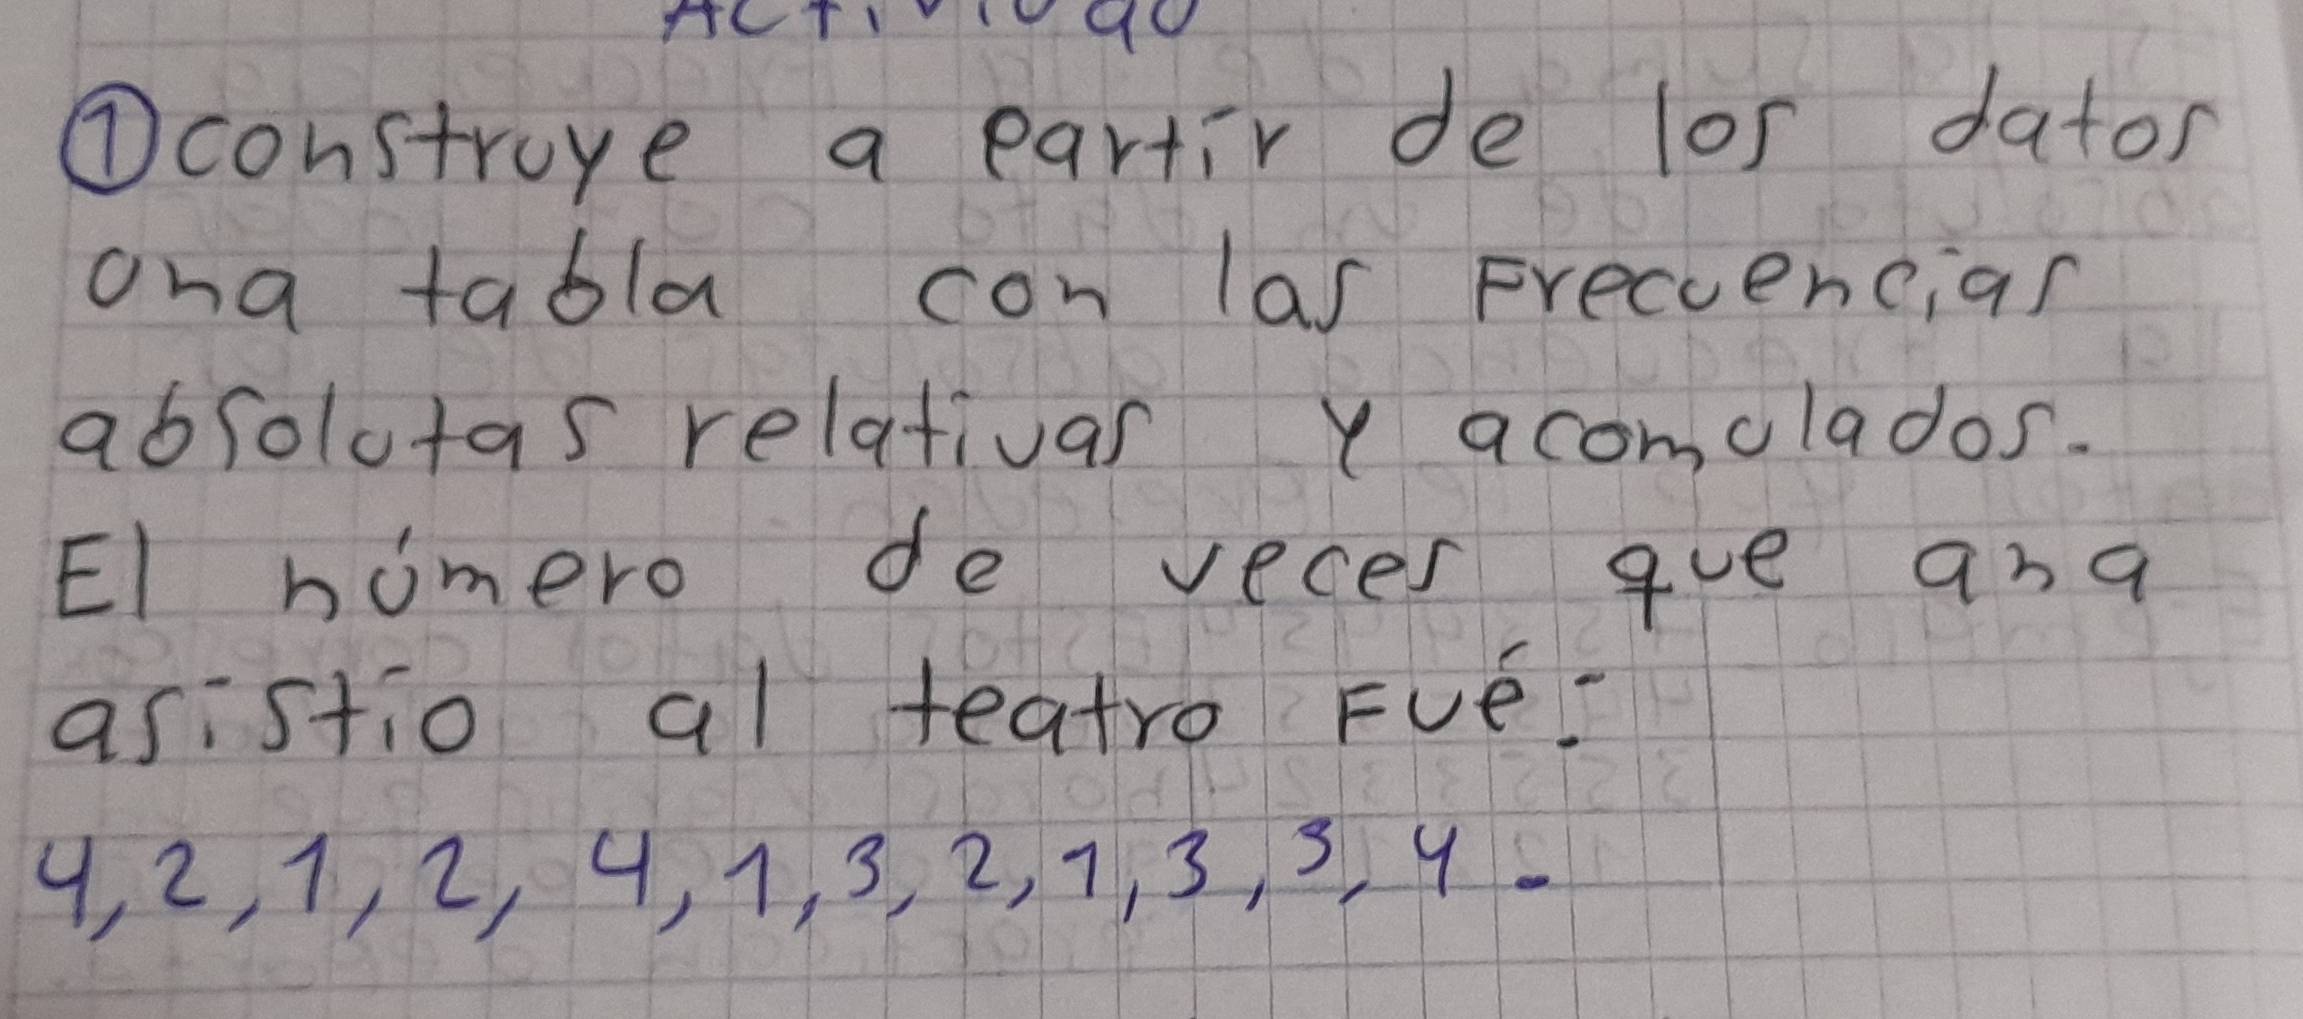 Actividad
① construye a partir de los datos
una tabla con las Frecuencias
absolutas relativas y acomulados.
El número de veces que ana
asistio al teatro Fué:
4, 2, 1, 2, 4, 1, 3, 2, 1, 3, 3, 4.